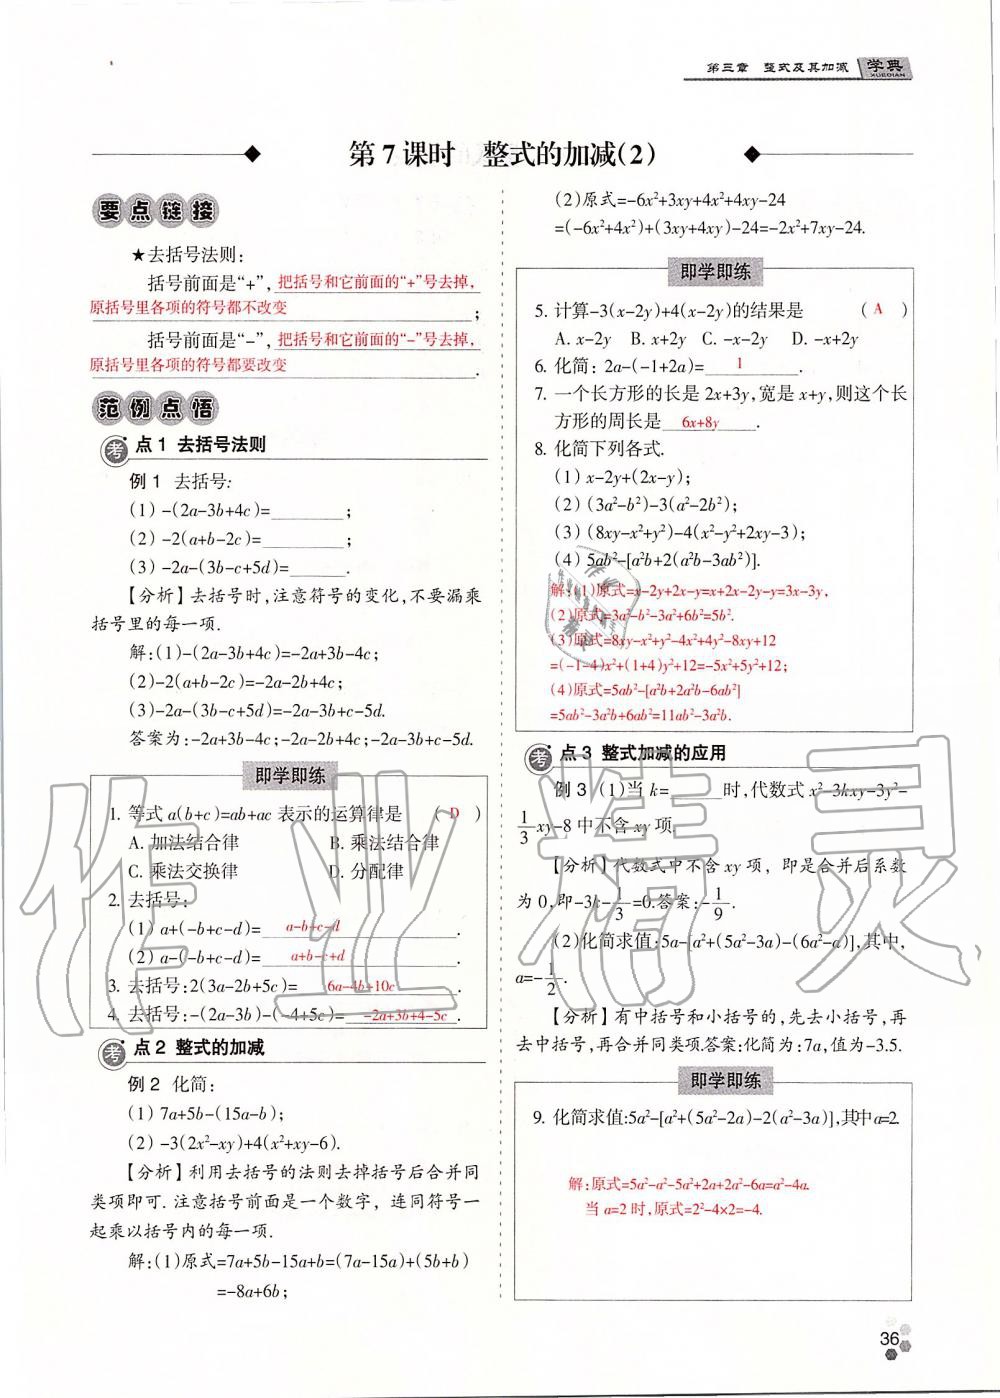 第三章　整式及其加减　学典
XUEDIAN
第7课时　整式的加减(2)
要点链接
★去括号法则:
括号前面是“+”, 把括号和它前面的“+”号去掉,
原括号里各项的符号都不改变;
括号前面是“-”, 把括号和它前面的“-”号去掉,
原括号里各项的符号都要改变.
范例点悟
考点1 去括号法则
例1 去括号:
(1) -(2a-3b+4c)=________;
(2) -2(a+b-2c)=________;
(3) -2a-(3b-c+5d)=______.
【分析】去括号时,注意符号的变化,不要漏乘
括号里的每一项.
解:(1)-(2a-3b+4c)=-2a+3b-4c;
(2)-2(a+b-2c)=-2a-2b+4c;
(3)-2a-(3b-c+5d)=-2a-3b+c-5d.
答案为:-2a+3b-4c;-2a-2b+4c;-2a-3b+c-5d.
即学即练
1. 等式 a(b+c)=ab+ac 表示的运算律是 ( D )
A. 加法结合律 B. 乘法结合律
C. 乘法交换律 D. 分配律
2. 去括号:
(1) a+(-b+c-d)= a-b+c-d .
(2) a-(-b+c-d)= a+b-c+d .
3. 去括号:2(3a-2b+5c)= 6a-4b+10c .
4. 去括号:-(2a-3b)-(-4+5c)= -2a+3b+4-5c .
考点2 整式的加减
例2 化简:
(1) 7a+5b-(15a-b);
(2) -3(2x²-xy)+4(x²+xy-6).
【分析】利用去括号的法则去掉括号后合并同
类项即可. 注意括号前面是一个数字, 连同符号一
起乘以括号内的每一项.
解:(1)原式=7a+5b-15a+b=(7a-15a)+(5b+b)
=-8a+6b;
(2)原式=-6x²+3xy+4x²+4xy-24
=(-6x²+4x²)+(3xy+4xy)-24=-2x²+7xy-24.
即学即练
5. 计算-3(x-2y)+4(x-2y)的结果是 ( A )
A. x-2y B. x+2y C. -x-2y D. -x+2y
6. 化简: 2a-(-1+2a)= 1 .
7. 一个长方形的长是 2x+3y,宽是 x+y,则这个长
方形的周长是 6x+8y .
8. 化简下列各式.
(1) x-2y+(2x-y);
(2) (3a²-b²)-3(a²-2b²);
(3) (8xy-x²+y²)-4(x²-y²+2xy-3);
(4) 5ab²-[a²b+2(a²b-3ab²)].
解:(1)原式=x-2y+2x-y=x+2x-2y-y=3x-3y,
(2)原式=3a²-b²-3a²+6b²=5b².
(3)原式=8xy-x²+y²-4x²+4y²-8xy+12
=(-1-4)x²+(1+4)y²+12=-5x²+5y²+12;
(4)原式=5ab²-[a²b+2a²b-6ab²]
=5ab²-3a²b+6ab²=11ab²-3a²b.
考点3 整式加减的应用
例3 (1)当 k=______时,代数式 x²-3kxy-3y²-
1/3 xy-8 中不含 xy 项.
【分析】代数式中不含 xy 项, 即是合并后系数
为 0,即-3k-1/3=0.答案:-1/9.
(2)化简求值:5a-[a²+(5a²-3a)-(6a²-a)],其中,
a=-1/2.
【分析】有中括号和小括号的,先去小括号,再
去中括号,再合并同类项.答案:化简为:7a,值为-3.5.
即学即练
9. 化简求值:5a²-[a²+(5a²-2a)-2(a²-3a)],其中a=2.
解:原式=5a²-a²-5a²+2a+2a²-6a=a²-4a.
当 a=2 时,原式=2²-4×2=-4.
36
作业精灵